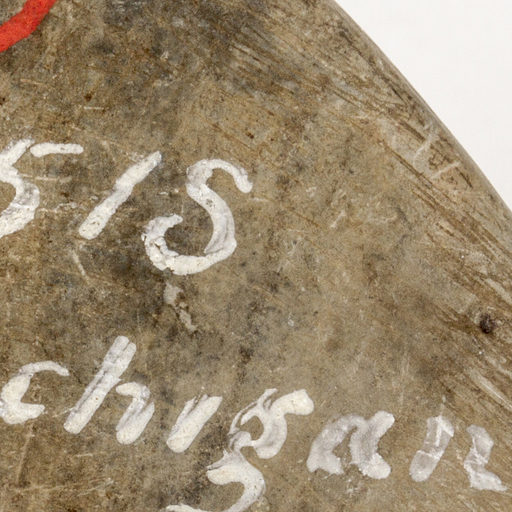 51S
chigan